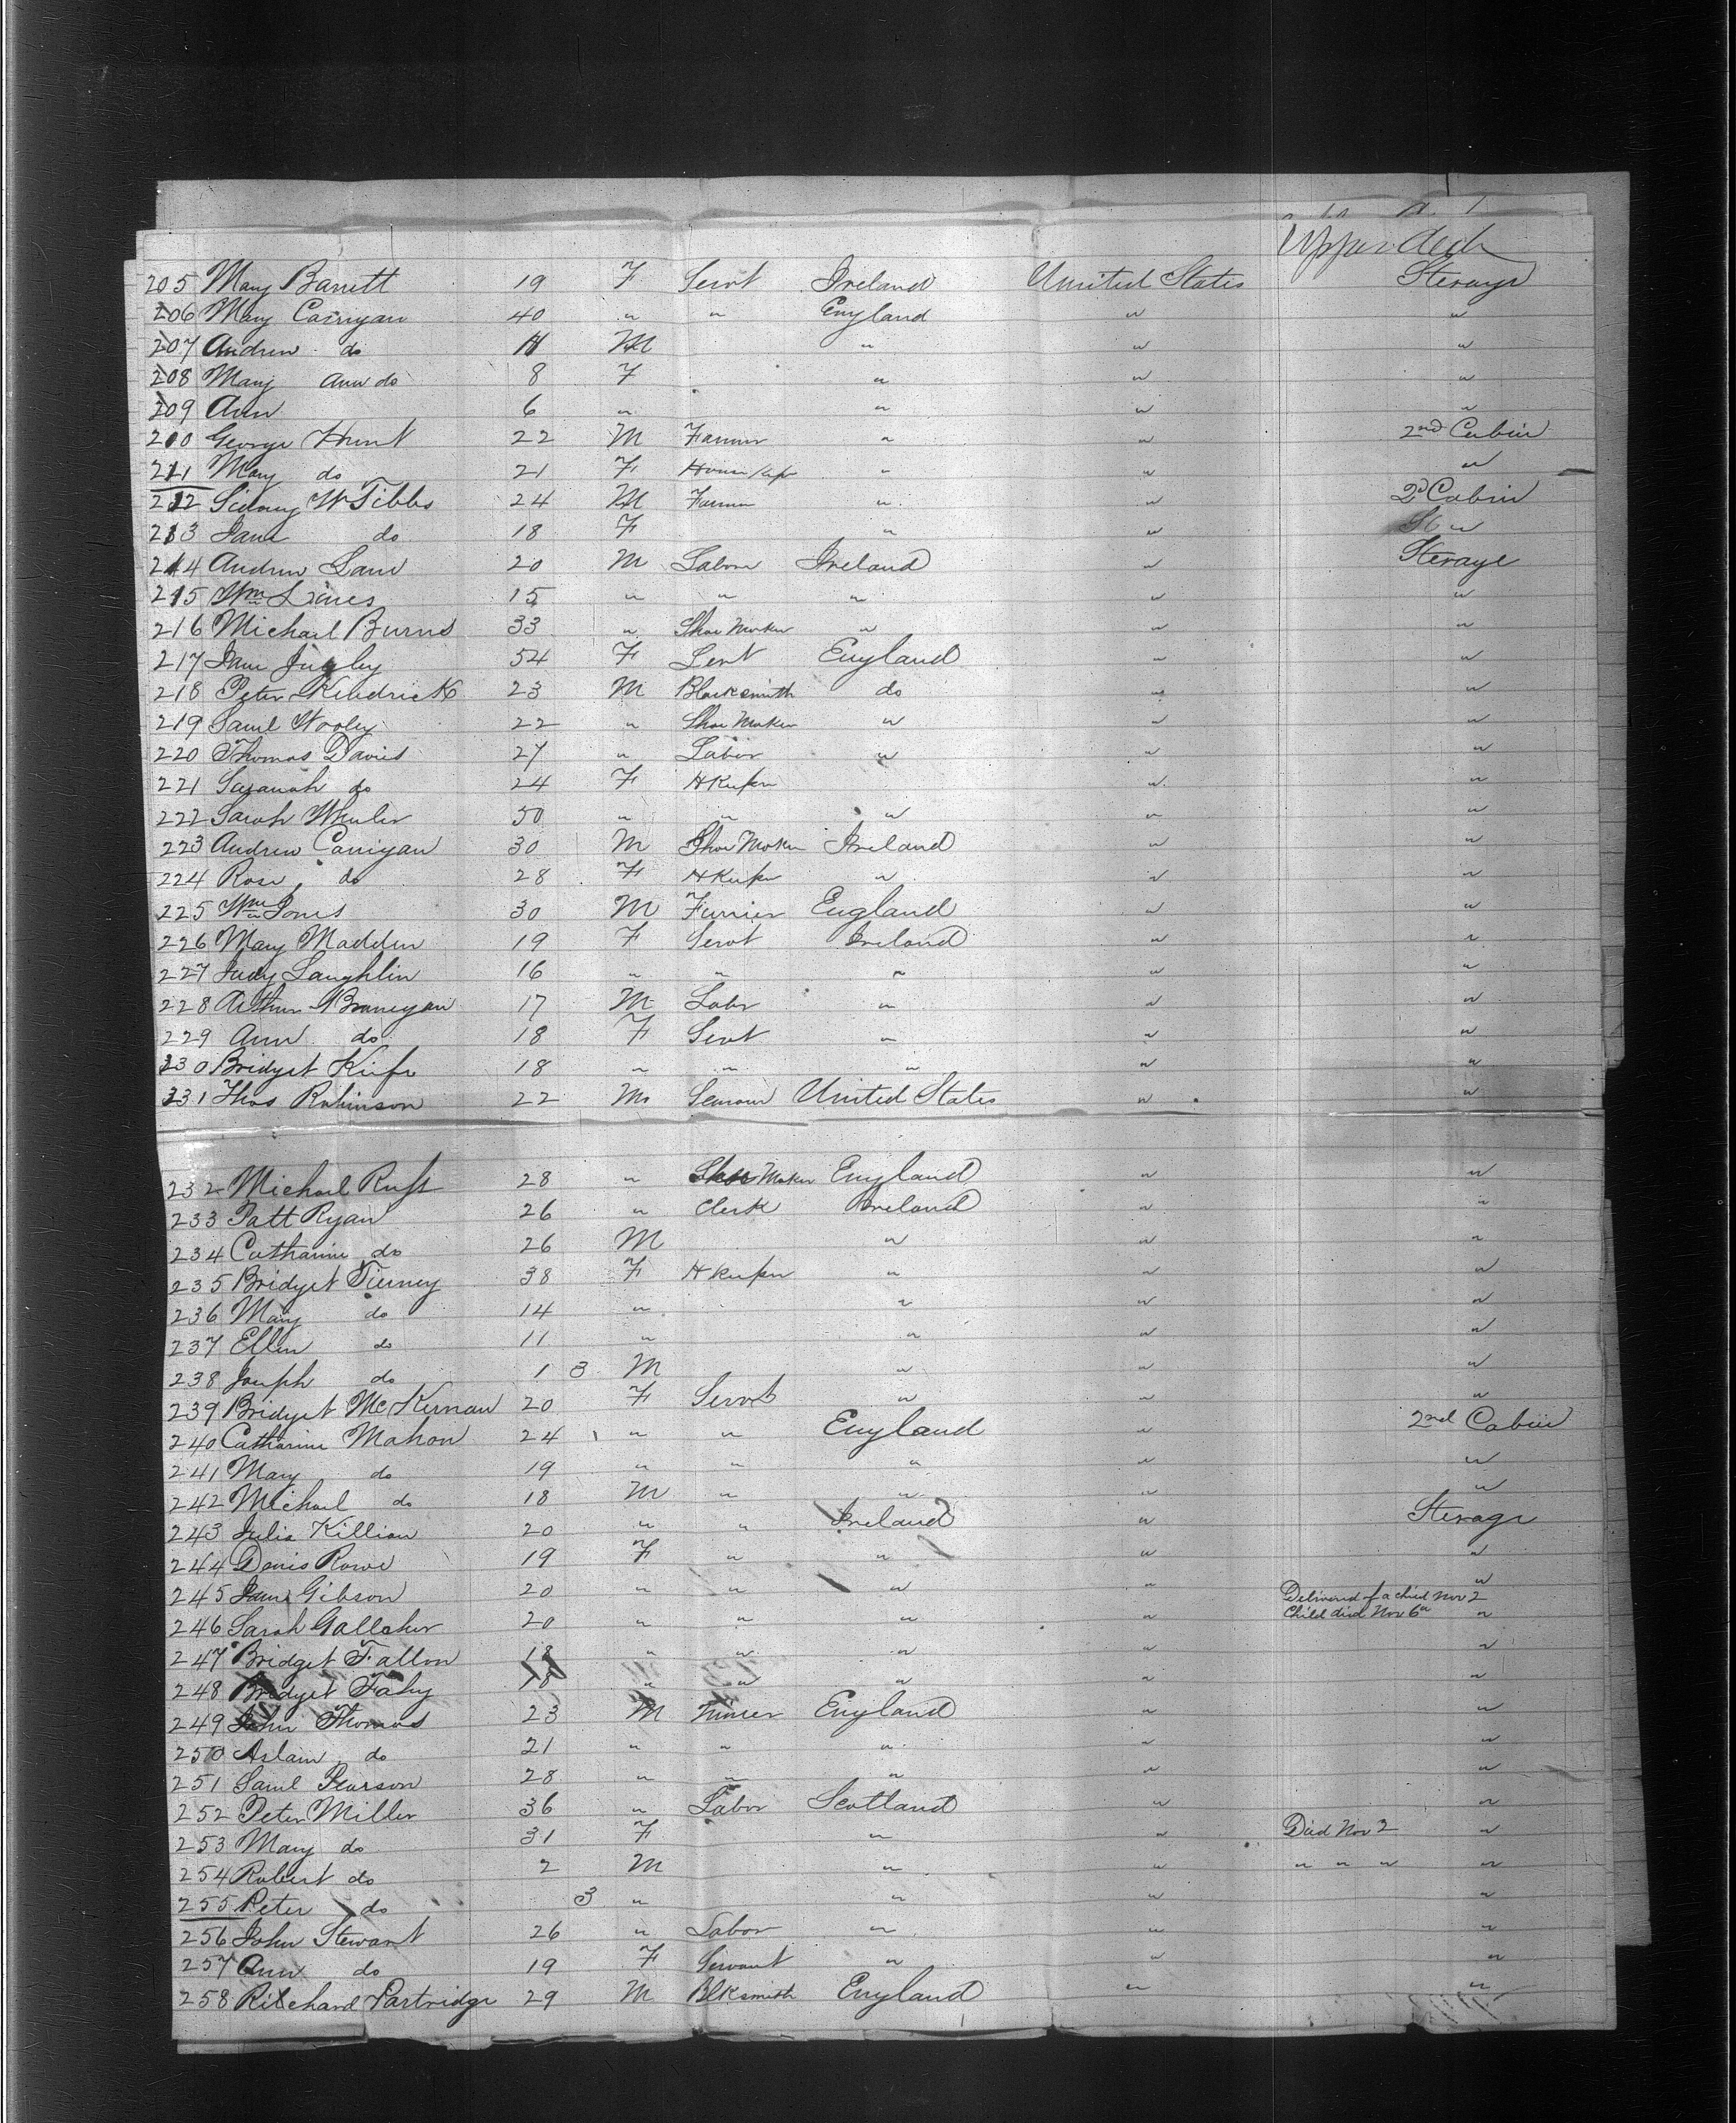 Upper deck
205 Mary Barrett 19 F Servt Ireland United States Sterage
206 Mary Carrigan 40 " " England " "
207 Andrew do 11 M " " "
208 Mary Ann do 8 F " " "
209 Ann 6 " " " "
210 George Hunt 22 M Farmer " " 2nd Cabin
211 Mary do 21 F House kpr " " "
212 Sidney W Tibbs 24 M Farmer " " 2d Cabin
213 Jane do 18 F " " "
214 Andrew Lane 20 M Labor Ireland " Sterage
215 Wm Lines 15 " " " " "
216 Michael Burns 33 " Shoe Maker " " "
217 Jane 54 F Servt England " "
218 Peter Kendrick 23 M Blacksmith do " "
219 Saml Wooley 22 " Shoe Maker " " "
220 Thomas Davies 27 " Labor " " "
221 Susanah do 24 F H Keeper " "
222 Sarah Wheeler 50 " " " " "
223 Andrew Carrigan 30 M Shoe Maker Ireland " "
224 Rose do 28 F H Keepr " " "
225 Wm Jones 30 M Furrier England " "
226 Mary Madden 19 F Servt Ireland " "
227 Judy Laughlin 16 " " " " "
228 Arthur Branegan 17 M Labr " " "
229 Ann do 18 F Servt " " "
230 Bridget Kiefe 18 " " " " "
231 Thos Robinson 22 M Seaman United States " "
232 Michael Russ 28 " Shoe Maker England " "
233 Patt Ryan 26 " Clerk Ireland " "
234 Catharine do 26 M " " "
235 Bridget Tierney 38 F H keeper " " "
236 Mary do 14 " " " "
237 Ellen do 11 " " " "
238 Joseph do 1 3 M " " "
239 Bridget McKernan 20 F Servt " " "
240 Catharine Mahon 24 " " England " 2nd Cabin
241 Mary do 19 " " " " "
242 Michael do 18 M " " " "
243 Julia Killian 20 " " Ireland " Sterage
244 Denis Rowe 19 F " " " "
245 Jane Gibson 20 " " " " Delivered of a child Nov 2 "
246 Sarah Gallaher 20 " " " " Child died Nov 6th "
247 Bridget Fallon 18 " " " " "
248 Bridget Fahy 18 " " " " "
249 John Thomas 23 M Miner England " "
250 Adam do 21 " " " " "
251 Saml Pearson 28 " " " " "
252 Peter Miller 36 " Labor Scotland " "
253 Mary do 31 F " " Died Nov 2 "
254 Robert do 2 M " " " " " "
255 Peter do 3 " " " "
256 John Stewart 26 " Labor " " "
257 Ann do 19 F Servant " " "
258 Ritchard Partridge 29 M Blksmith England " "